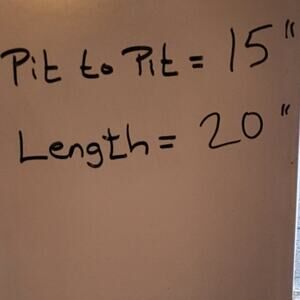 Pit to Pit = 15"
Length = 20"